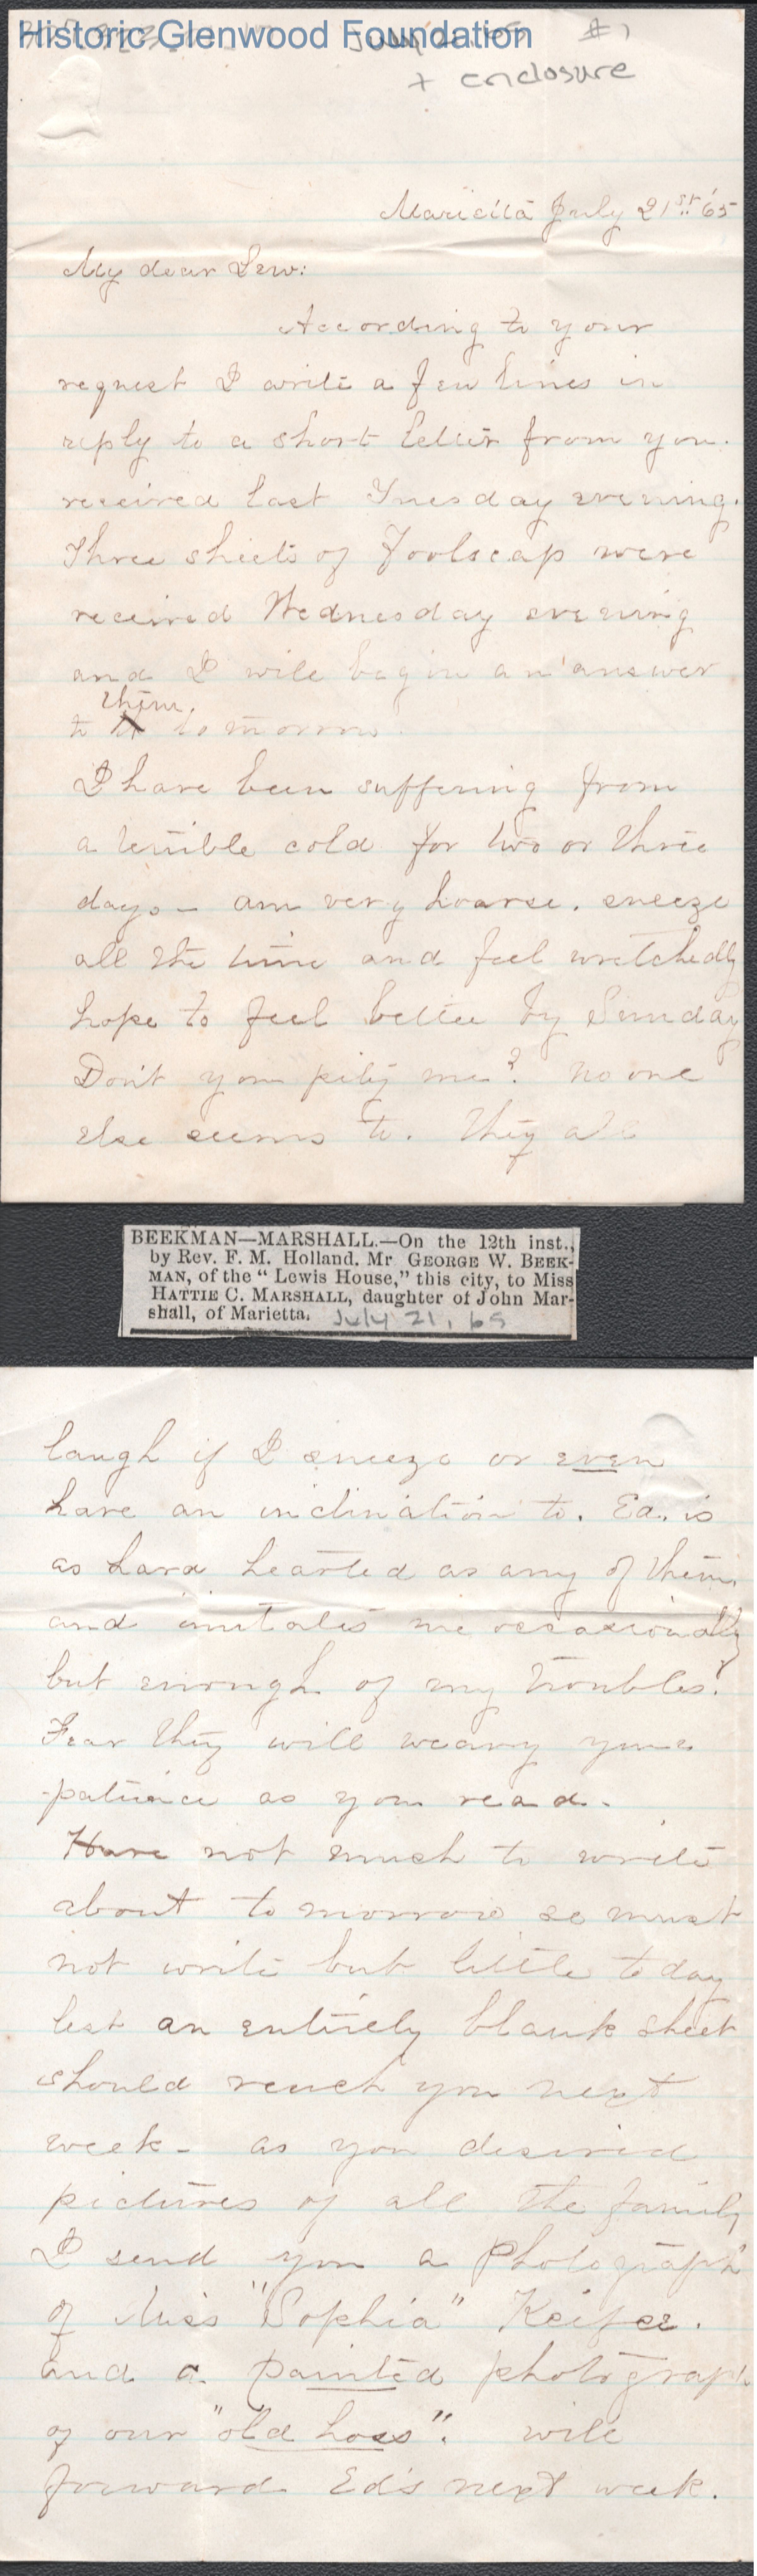 Historic Glenwood Foundation
#1
+ enclosure
Marietta July 21st '65
My dear Lew:
According to your
request I write a few lines in
reply to a short letter from you
received last Tuesday evening.
Three sheets of Foolscap were
received Wednesday evening
and I will begin an answer
to them tomorrow.
I have been suffering from
a terrible cold for two or three
days - am very hoarse. sneeze
all the time and feel wretchedly
hope to feel better by Sunday
Don't you pity me? No one
else seems to. They all
BEEKMAN—MARSHALL.—On the 12th inst.,
by Rev. F. M. Holland. Mr GEORGE W. BEEK-
MAN, of the "Lewis House," this city, to Miss
HATTIE C. MARSHALL, daughter of John Mar-
shall, of Marietta.
July 21, 65
laugh if I sneeze or even
have an inclination to. Ed. is
as hard hearted as any of them,
and imitates me occasionally
but enough of my troubles!
Fear they will weary your
patience as you read.
Have not much to write
about tomorrow so must
not write but little today
lest an entirely blank sheet
should reach you next
week - as you desired
pictures of all the family
I send you a Photograph
of Miss "Sophia" Keifer.
and a painted photograph
of our "old hoss". will
forward Ed's next week.